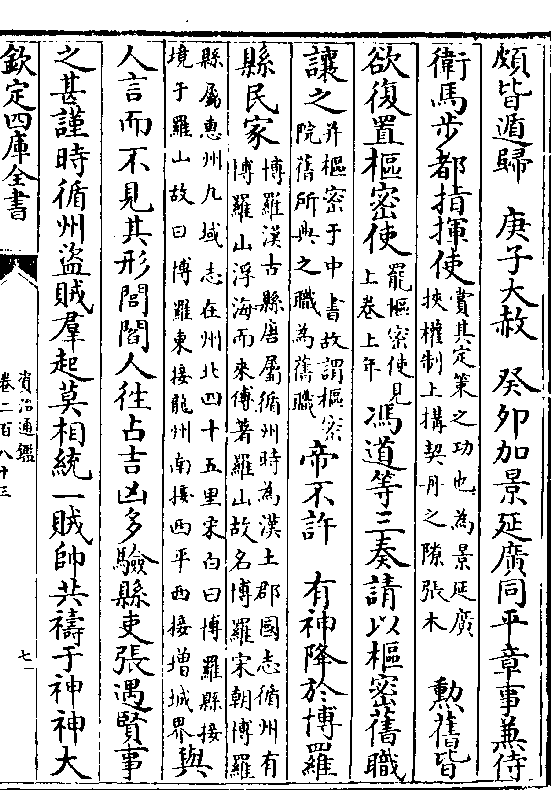 頗皆遁歸　庚子大赦　癸卯加景延廣同平章事兼侍
衛馬步都指揮使賞其定策之功也為景延廣
挾權制上搆契丹之隙張木　勲舊皆
欲復置樞密使罷樞密使見
上卷上年　馮道等三奏請以樞密舊職
讓之并樞密于中書故謂樞密
院舊所典之職為舊職　帝不許　有神降於博羅
縣民家博羅漢古縣唐屬循州時為漢土郡國志循州有
博羅山浮海而來傅著羅山故名博羅宋朝博羅
縣屬惠州九域志在州北四十五里宋白曰博羅縣接
境于羅山故曰博羅東接龍州南接西平西接增城界與
人言而不見其形閭閻人往占吉凶多驗縣吏張遇賢事
之甚謹時循州盜賊羣起莫相統一賊帥共禱于神神大
欽定四庫全書
資治通鑑
卷二百八十三
七